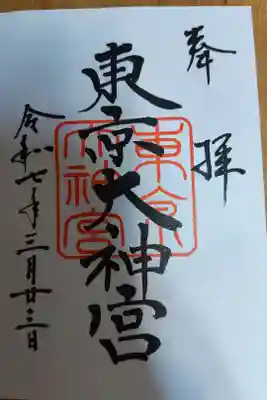 奉拝
東京大神宮
令和七年三月廿三日
東京
大神宮